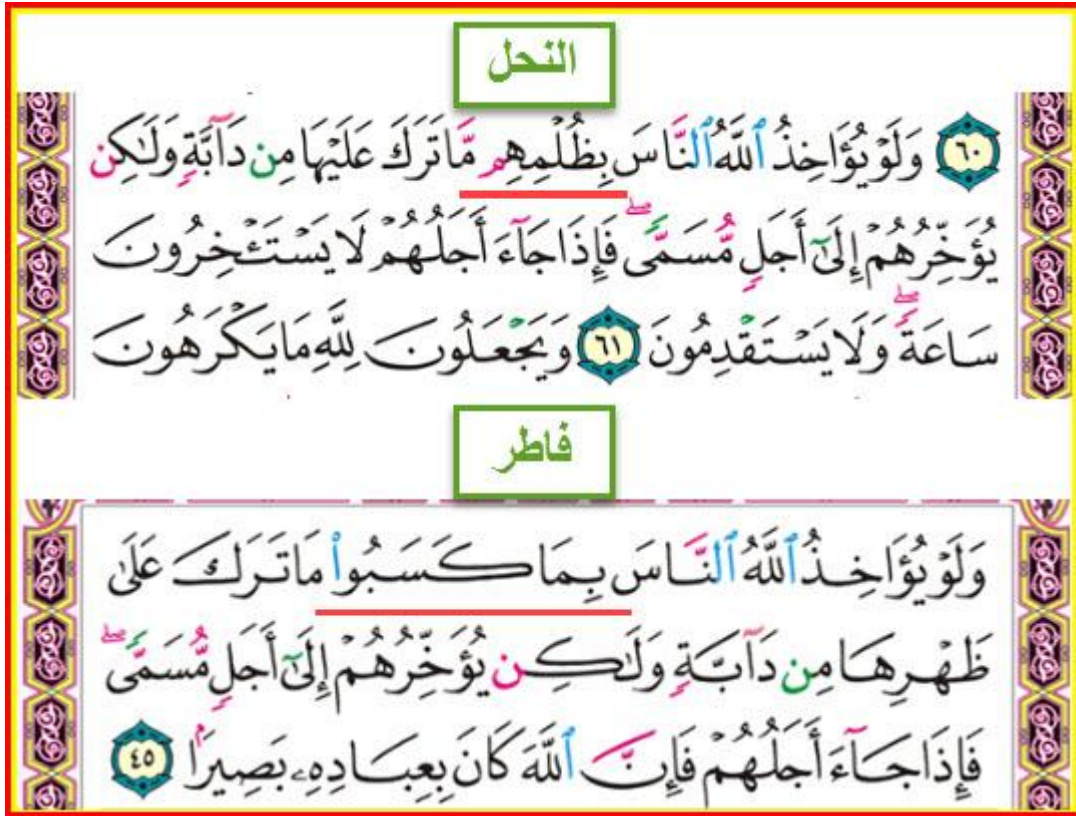 النحل
٦٠ وَلَوْ يُؤَاخِذُ ٱللَّهُ ٱلنَّاسَ بِظُلْمِهِم مَّا تَرَكَ عَلَيْهَا مِن دَآبَّةٍ وَلَٰكِن
يُؤَخِّرُهُمْ إِلَىٰٓ أَجَلٍ مُّسَمًّى ۖ فَإِذَا جَآءَ أَجَلُهُمْ لَا يَسْتَـْٔخِرُونَ
سَاعَةً ۖ وَلَا يَسْتَقْدِمُونَ ٦١ وَيَجْعَلُونَ لِلَّهِ مَا يَكْرَهُونَ
فاطر
وَلَوْ يُؤَاخِذُ ٱللَّهُ ٱلنَّاسَ بِمَا كَسَبُوا۟ مَا تَرَكَ عَلَىٰ
ظَهْرِهَا مِن دَآبَّةٍ وَلَٰكِن يُؤَخِّرُهُمْ إِلَىٰٓ أَجَلٍ مُّسَمًّى ۖ
فَإِذَا جَآءَ أَجَلُهُمْ فَإِنَّ ٱللَّهَ كَانَ بِعِبَادِهِۦ بَصِيرًۢا ٤٥